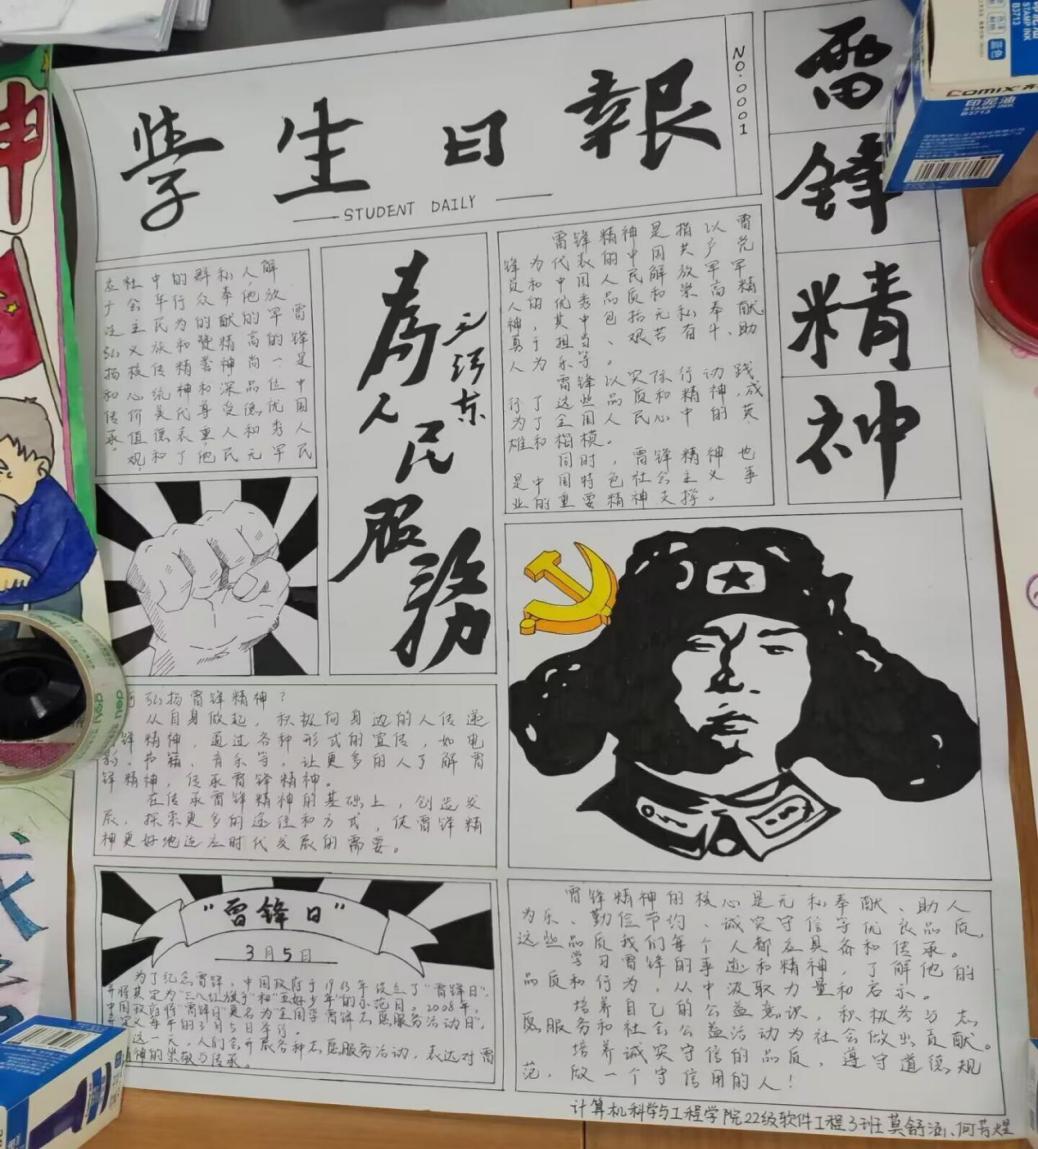 學生日報
STUDENT DAILY
NO.0001
雷锋精神
雷锋是中国人民
解放军的一位优秀军
毛泽东
為人民服務
雷锋精神是指以雷
锋为代表的中国共产党
员和中国人民解放军军
人的优秀品质和崇高精
神,其中包括无私奉献、
勇于担当、艰苦奋斗、助
人为乐等。
雷锋以实际行动践
行了这些品质和精神,成
为了全国人民心中的英
雄和楷模。
同时,雷锋精神也
是中国特色社会主义事
业的重要精神支撑。
弘扬雷锋精神?
从自身做起,积极向身边的人传递
锋精神,通过各种形式的宣传,如电
影、书籍、音乐等,让更多的人了解雷
锋精神,传承雷锋精神。
在传承雷锋精神的基础上,创造发
展,探索更多的途径和方式,使雷锋精
神更好地适应时代发展的需要。
"雷锋日"
3月5日
为了纪念雷锋,中国政府于1963年设立了"雷锋日",
并将其定为"三八红旗手"和"五好少年"的示范日。2008年,
中国政府将"雷锋日"更名为"全国学雷锋志愿服务活动日",
定义每年的3月5日举行。
这一天,人们会开展各种志愿服务活动,表达对雷
精神的崇敬与传承。
雷锋精神的核心是无私奉献、助人
为乐、勤俭节约、诚实守信等优良品质,
这些品质我们每个人都应具备和传承。
学习雷锋的事迹和精神,了解他的
品质和行为,从中汲取力量和启示。
培养自己的公益意识,积极参与志
愿服务和社会公益活动为社会做出贡献。
培养诚实守信的品质,遵守道德规
范,做一个守信用的人!
计算机科学与工程学院22级软件工程3班 莫舒涵、何芳煌
COMIX
印泥油
STAMP INK
B3713
蓝色
deli